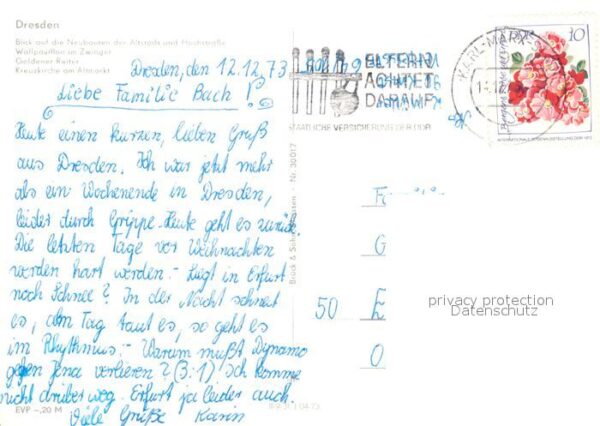 Dresden
Blick auf die Neubauten der Altstadt und Hauptstraße
Wallpavillon im Zwinger
Goldener Reiter
Kreuzkirche am Altmarkt
Dresden, den 12.12.73
Liebe Familie Bach!
Heute einen kurzen, lieben Gruß
aus Dresden. Ich war jetzt mehr
als ein Wochenende in Dresden,
leider durch Grippe. Heute geht es zurück.
Die letzten Tage vor Weihnachten
werden hart werden. - Liegt in Erfurt
noch Schnee? In der Nacht schneit
es, am Tag taut es, so geht es
im Rhythmus. - Warum mußt Dynamo
gegen Jena verlieren? (3:1) Ich komme
nicht drüber weg. Erfurt ja leider auch.
Viele Grüße Karin
EVP -,20 M
Nr. 30017
ELTERN
ACHTET
DARAUF
STAATLICHE VERSICHERUNG DER DDR
KARL-MARX-
10
50
privacy protection
Datenschutz